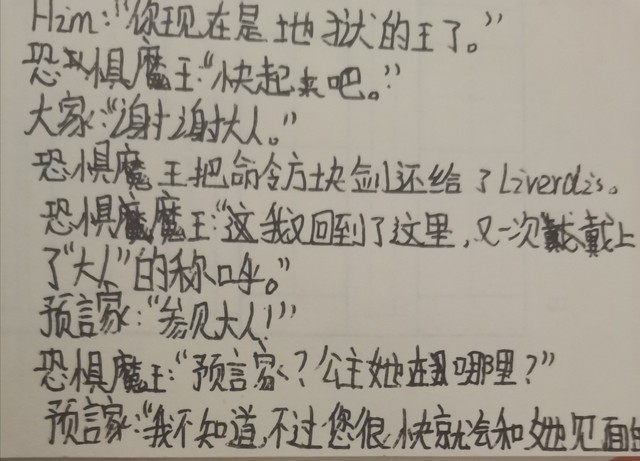 Him:“你现在是地狱的王了。”
恐惧魔王:“快起来吧。”
大家:“谢谢大人。”
恐惧魔王把命令方块剑还给了Liverdis。
恐惧魔王:“这我又回到了这里,又一次戴上
了“大人”的称呼。”
预言家:“参见大人!”
恐惧魔王:“预言家?公主她在哪里?”
预言家:“我不知道,不过您很快就会和她见面